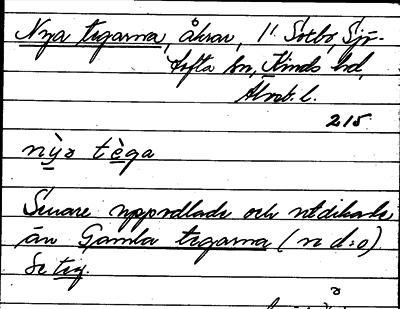 Nya tegarna, åkrar, 1/1 Sotbo, Sjö-
tofta sn, Kinds hd,
Älvsb. l.
215
nỳə tèga
Senare uppodlade och utdikade
än Gamla tegarna (n d:o)
Se teg.